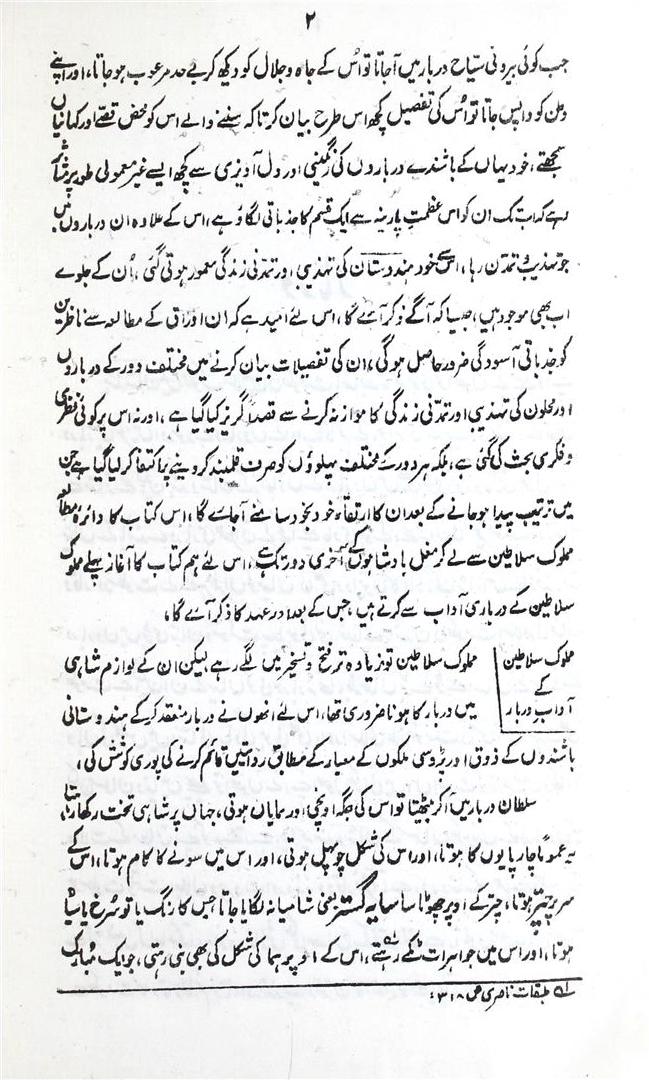 ۲
جب کوئی بیرونی سیاح دربار میں آجاتا تو اُس کے جاہ و جلال کو دیکھ کر بے حد مرعوب ہو جاتا، اور اپنے
وطن کو واپس جاتا تو اُس کی تفصیل کچھ اس طرح بیان کرتا کہ سننے والے اس کو محض قصے اور کہانیاں
سمجھتے، خود یہاں کے باشندے درباروں کی رنگینی اور دل آویزی سے کچھ ایسے غیر معمولی طور پر متاثر
رہے کہ اب تک ان کو اس عظمتِ پارینہ سے ایک قسم کا جذباتی لگاؤ ہے، اس کے علاوہ ان درباروں میں
جو تہذیب و تمدن رہا، اس سے خود ہندوستان کی تہذیبی اور تمدنی زندگی معمور ہوتی گئی، اُن کے جلوے
اب بھی موجود ہیں، جیسا کہ آگے ذکر آئے گا، اس لئے امید ہے کہ ان اوراق کے مطالعہ سے ناظرین
کو جذباتی آسودگی ضرور حاصل ہوگی، ان کی تفصیلات بیان کرنے میں مختلف دور کے درباروں
اور محلوں کی تہذیبی اور تمدنی زندگی کا موازنہ کرنے سے قصداً گریز کیا گیا ہے، اور نہ اس پر کوئی نظری
و فکری بحث کی گئی ہے، بلکہ ہر دور کے مختلف پہلوؤں کو صرف قلمبند کر دینے پر اکتفا کر لیا گیا ہے جن
میں ترتیب پیدا ہو جانے کے بعد ان کا ارتقاء خود بخود سامنے آجائے گا، اس کتاب کا دائرہ مطالعہ
مملوک سلاطین سے لے کر مغل بادشاہوں کے آخری دور تک ہے، اس لئے ہم کتاب کا آغاز پہلے مملوک
سلاطین کے درباری آداب سے کرتے ہیں، جس کے بعد اور عہد کا ذکر آئے گا،
مملوک سلاطین
کے
آدابِ دربار
مملوک سلاطین تو زیادہ تر فتح و تسخیر میں لگے رہے لیکن ان کے لوازم شاہی
میں دربار کا ہونا ضروری تھا، اس لئے انھوں نے دربار منعقد کر کے ہندوستانی
باشندوں کے ذوق اور پڑوسی ملکوں کے معیار کے مطابق روایتیں قائم کرنے کی پوری کوشش کی،
سلطان دربار میں آکر بیٹھتا تو اس کی جگہ اونچی اور نمایاں ہوتی، جہاں پر شاہی تخت رکھا رہتا،
یہ عموماً چار پایوں کا ہوتا، اور اس کی شکل چوپہل ہوتی، اور اس میں سونے کا کام ہوتا، اس کے
سر پر چتر ہوتا، چتر کے اوپر چھوٹا سا سایہ گستر یعنی شامیانہ لگایا جاتا جس کا رنگ یا تو سُرخ یا سیاہ
ہوتا، اور اس میں جواہرات ٹنکے رہتے، اس کے اوپر ہما کی شکل کی بھی بنی رہتی، جو ایک مبارک
لہ طبقات ناصری ص ۳۱۸،